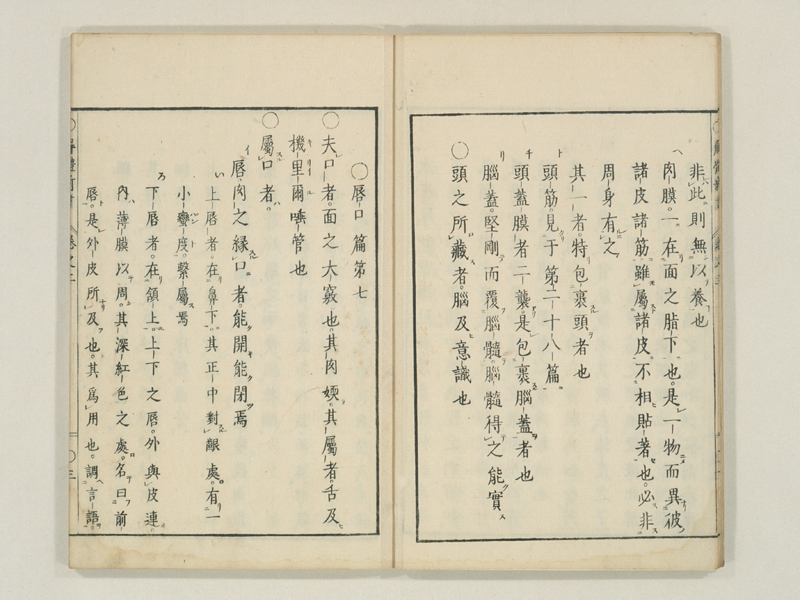 非此則無以養也
肉膜一在面之脂下也是一物而異彼
諸皮諸筋雖屬諸皮不相貼著也必非
周身有之
其一者特包裹頭者也
頭筋見于第二十八篇
頭蓋膜者二襲是包裹腦蓋者也
腦蓋堅剛而覆腦髓腦髓得之能實
〇頭之所藏者腦及意識也
〇唇口篇第七
〇夫口者面之大竅也其肉㛪其屬者舌及
機里爾唾管也
〇屬口者
唇肉之緣口者能開能閉焉
上唇者在鼻下其正中對齦處有一
小蠻皮繫屬焉
下唇者在頷上上下之唇外與皮連
內薄膜以周其深紅色之處名曰前
唇是外皮所及也其爲用也調言語